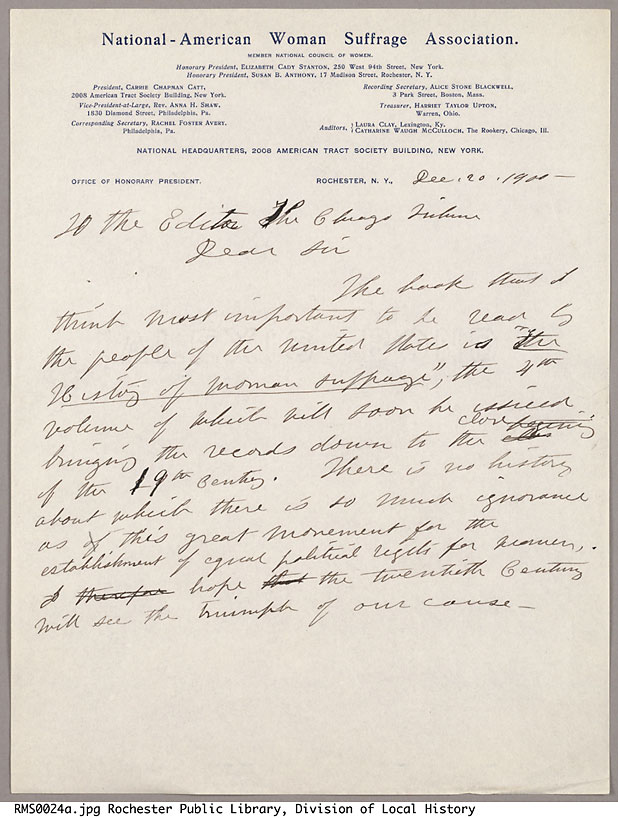 National-American Woman Suffrage Association.
MEMBER NATIONAL COUNCIL OF WOMEN.
Honorary President, ELIZABETH CADY STANTON, 250 West 94th Street, New York.
Honorary President, SUSAN B. ANTHONY, 17 Madison Street, Rochester, N. Y.
President, CARRIE CHAPMAN CATT,
2008 American Tract Society Building, New York.
Vice-President-at-Large, REV. ANNA H. SHAW,
1830 Diamond Street, Philadelphia, Pa.
Corresponding Secretary, RACHEL FOSTER AVERY,
Philadelphia, Pa.
Recording Secretary, ALICE STONE BLACKWELL,
3 Park Street, Boston, Mass.
Treasurer, HARRIET TAYLOR UPTON,
Warren, Ohio.
Auditors, { LAURA CLAY, Lexington, Ky.
CATHARINE WAUGH McCULLOCH, The Rookery, Chicago, Ill.
NATIONAL HEADQUARTERS, 2008 AMERICAN TRACT SOCIETY BUILDING, NEW YORK.
OFFICE OF HONORARY PRESIDENT. ROCHESTER, N. Y., Dec. 20. 1900 —
To the Editor The Chicago Tribune
Dear Sir
The book that I
think most important to be read by
the people of the United States is "The
History of Woman Suffrage", the 4th
volume of which will soon be issued
bringing the records down to the close
of the 19th Century. There is no history
about which there is so much ignorance
as of this great movement for the
establishment of equal political rights for women.
I therefore hope that the twentieth Century
will see the triumph of our cause —
RMS0024a.jpg Rochester Public Library, Division of Local History